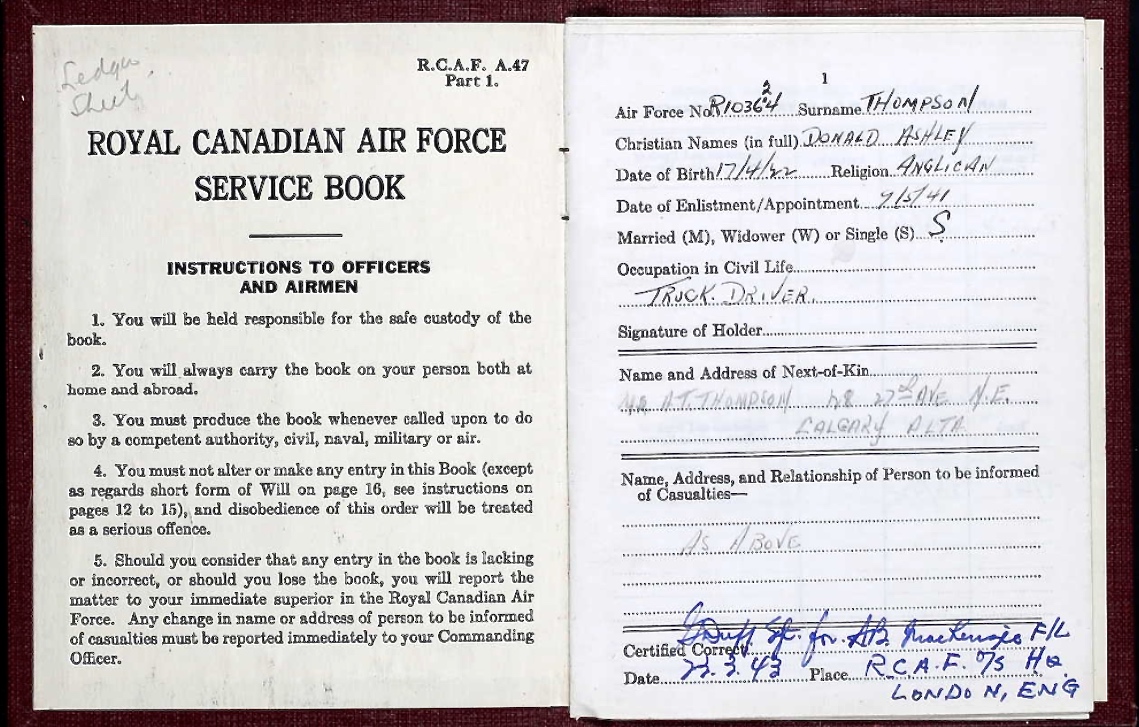 Ledger
Sheet
R.C.A.F. A.47
Part 1.
ROYAL CANADIAN AIR FORCE
SERVICE BOOK
INSTRUCTIONS TO OFFICERS
AND AIRMEN
1. You will be held responsible for the safe custody of the
book.
2. You will always carry the book on your person both at
home and abroad.
3. You must produce the book whenever called upon to do
so by a competent authority, civil, naval, military or air.
4. You must not alter or make any entry in this Book (except
as regards short form of Will on page 16, see instructions on
pages 12 to 15), and disobedience of this order will be treated
as a serious offence.
5. Should you consider that any entry in the book is lacking
or incorrect, or should you lose the book, you will report the
matter to your immediate superior in the Royal Canadian Air
Force. Any change in name or address of person to be informed
of casualties must be reported immediately to your Commanding
Officer.
1
2
Air Force No. R10364 Surname THOMPSON
Christian Names (in full) DONALD ASHLEY
Date of Birth 17/4/22 Religion ANGLICAN
Date of Enlistment/Appointment 7/5/41
Married (M), Widower (W) or Single (S) S
Occupation in Civil Life
TRUCK DRIVER.
Signature of Holder
Name and Address of Next-of-Kin
A.T. THOMPSON 27th AVE N.E.
CALGARY ALTA
Name, Address, and Relationship of Person to be informed
of Casualties—
AS ABOVE
Duff for MacKenzie F/L
Certified Correct
Date 23.3.43 Place R.C.A.F. O/S HQ
LONDON, ENG